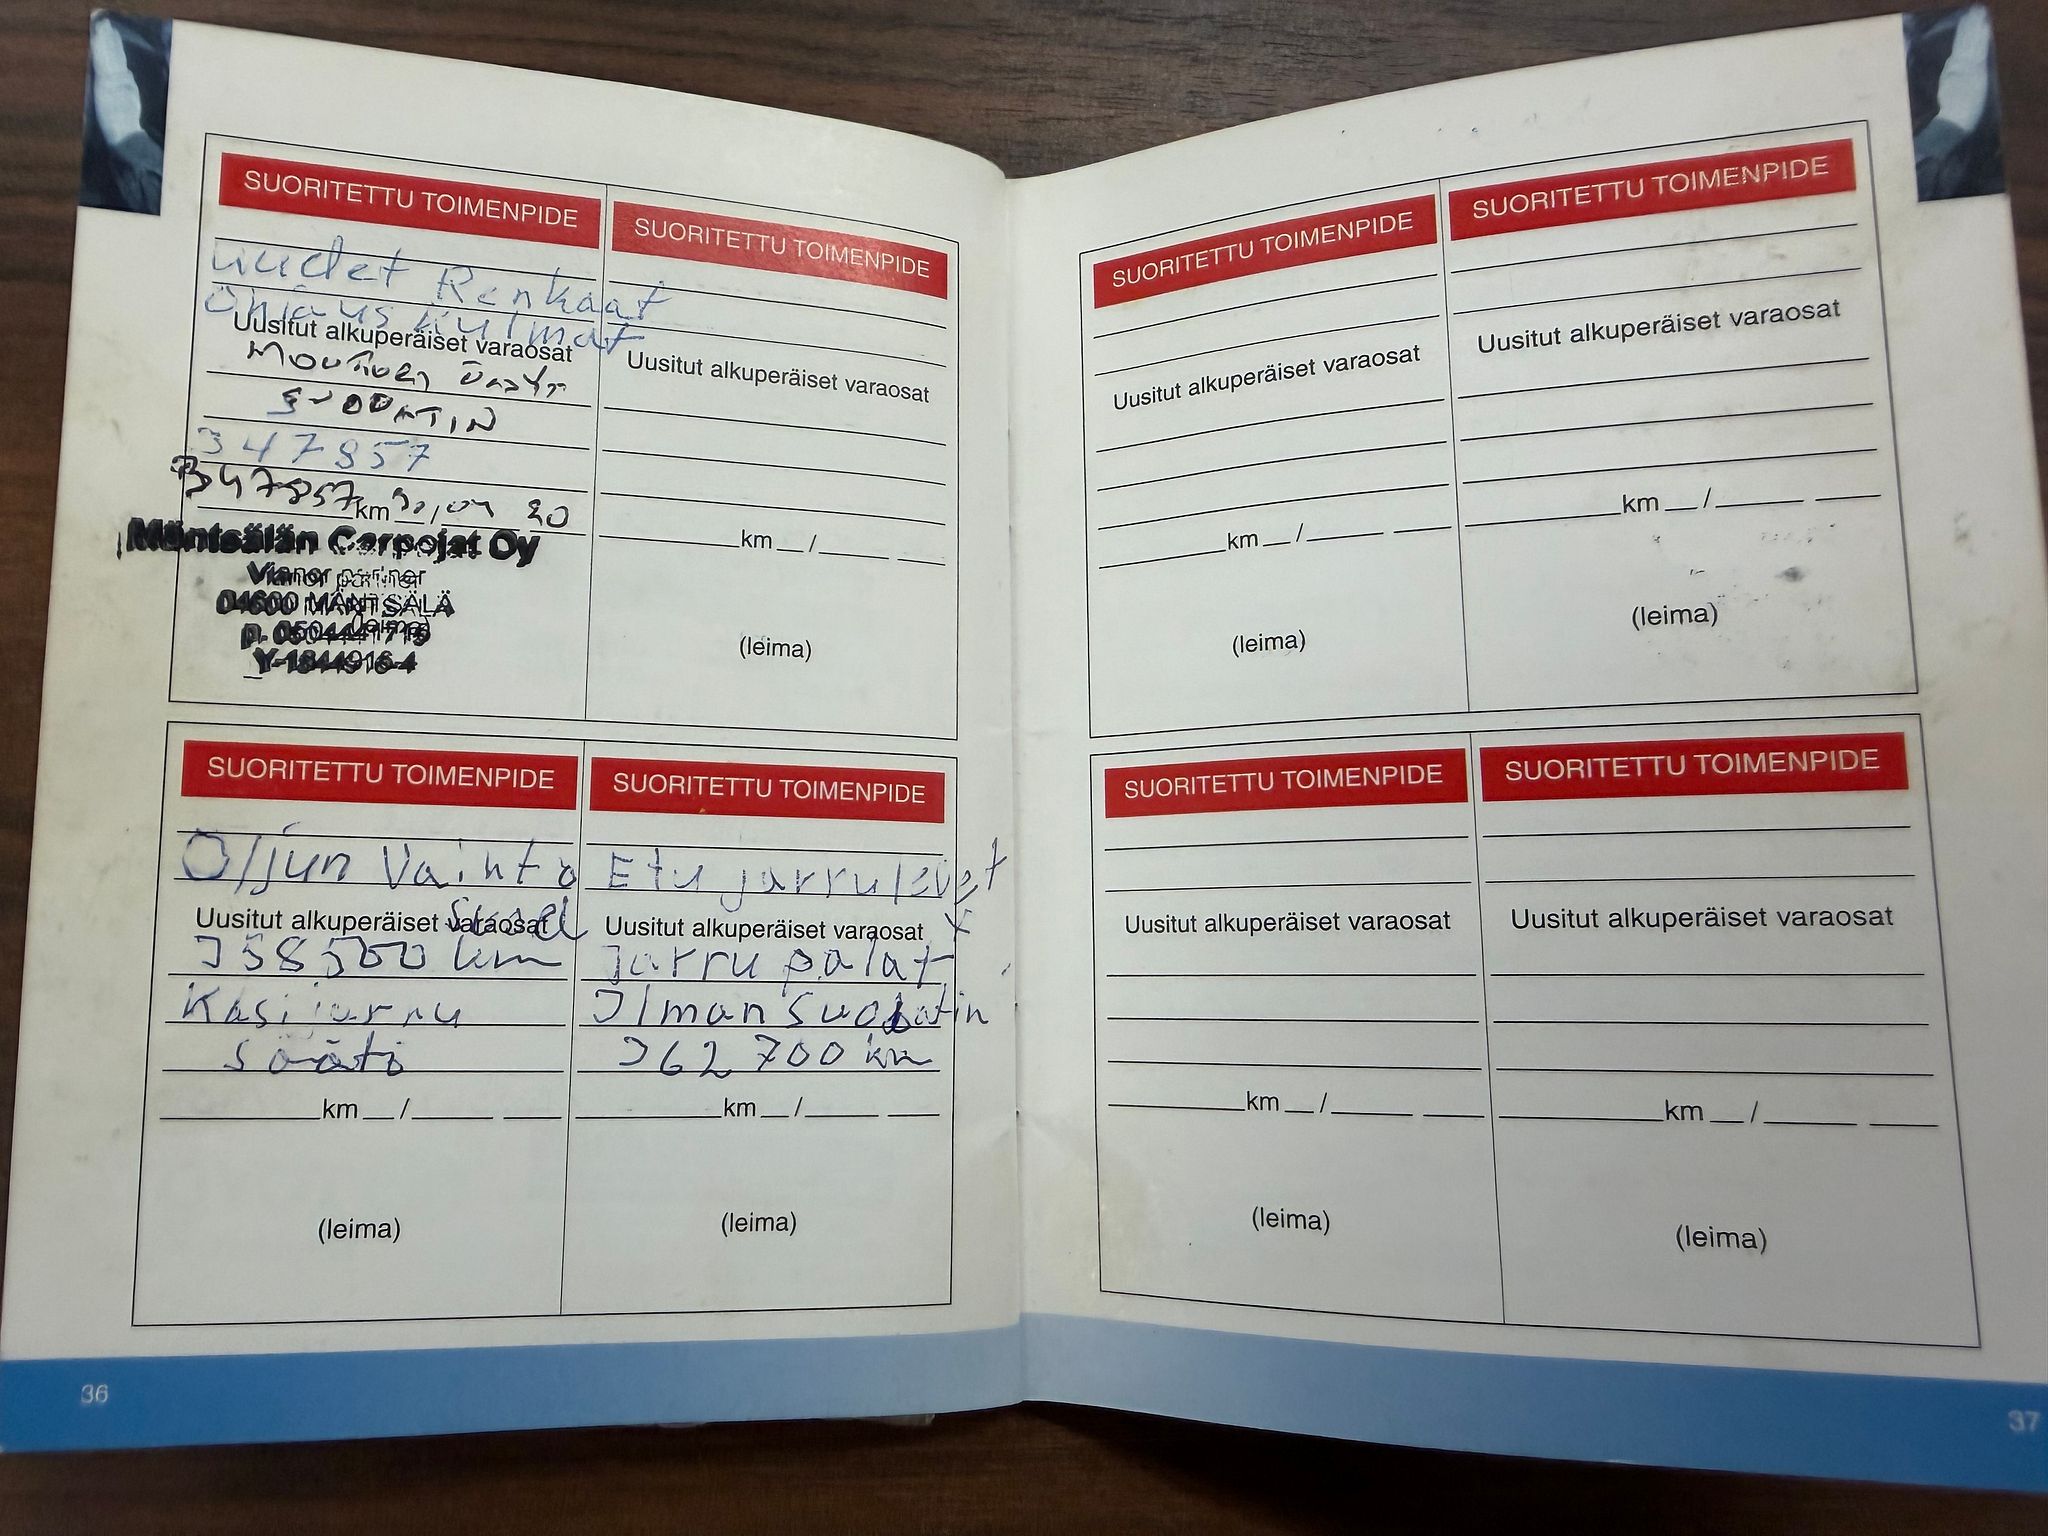 SUORITETTU TOIMENPIDE
uudet Renkaat
Ohjaus kulmat
Uusitut alkuperäiset varaosat
347857
347857 km 30/04 20
Mäntsälän Carpojat Oy
Vianor partner
04600 MÄNTSÄLÄ
(leima)
p. 0504441715
Y-1844916-4
SUORITETTU TOIMENPIDE
Uusitut alkuperäiset varaosat
km /
(leima)
SUORITETTU TOIMENPIDE
Öljyn Vaihto
Uusitut alkuperäiset varaosat
358500 km
Kasijarru
säätö
km /
(leima)
SUORITETTU TOIMENPIDE
Etu jarrulevet
Uusitut alkuperäiset varaosat
Jarru palat
Ilman Suodatin
362700 km
km /
(leima)
36
SUORITETTU TOIMENPIDE
Uusitut alkuperäiset varaosat
km /
(leima)
SUORITETTU TOIMENPIDE
Uusitut alkuperäiset varaosat
km /
(leima)
SUORITETTU TOIMENPIDE
Uusitut alkuperäiset varaosat
km /
(leima)
SUORITETTU TOIMENPIDE
Uusitut alkuperäiset varaosat
km /
(leima)
37